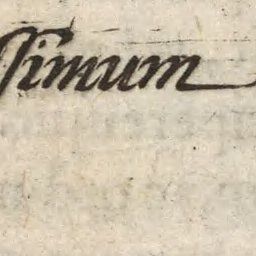 ſimum